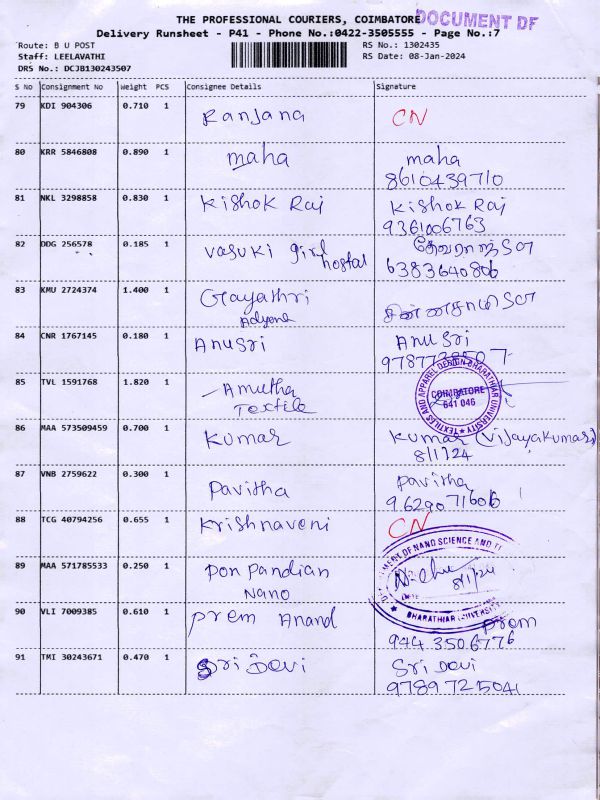 THE PROFESSIONAL COURIERS, COIMBATORE DOCUMENT DF
Delivery Runsheet - P41 - Phone No.:0422-3505555 - Page No.:7
Route: B U POST RS No.: 1302435
Staff: LEELAVATHI RS Date: 08-Jan-2024
DRS No.: DCJB130243507
S No Consignment No Weight PCS Consignee Details Signature
79 KDI 904306 0.710 1 Ranjana CN
80 KRR 5846808 0.890 1 maha maha
8610439710
81 NKL 3298858 0.830 1 Kishok Raj Kishok Raj
9361006763
82 DDG 256578 0.185 1 vasuki girl
hostal
6383640806
83 KMU 2724374 1.400 1 Gayathri
84 CNR 1767145 0.180 1 Anusri Anu Sri
85 TVL 1591768 1.820 1 Amutha
Textile
TEXTILES AND APPAREL DESIGN BHARATHIAR UNIVERSITY
COIMBATORE
641 046
86 MAA 573509459 0.700 1 Kumar Kumar (Vijayakumar)
8/1/24
87 VNB 2759622 0.300 1 Pavitha Pavitha
9629071606
88 TCG 40794256 0.655 1 Krishnaveni CN
89 MAA 571785533 0.250 1 Pon pandian
Nano
OF NANO SCIENCE AND
8/1/24
BHARATHIAR UNIVERSITY
90 VLI 7009385 0.610 1 Prem Anand Prem
9443506776
91 TMI 30243671 0.470 1 Sri Devi Sri Devi
9789725041